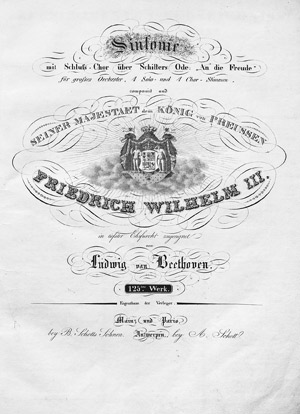 Sinfonie
mit Schluss-Chor über Schillers Ode: „An die Freude"
für grosses Orchester, 4 Solo- und 4 Chor-Stimmen,
componirt und
SEINER MAJESTAET dem KÖNIG von PREUSSEN
FRIEDRICH WILHELM III.
in tiefster Ehrfurcht zugeeignet
von
Ludwig van Beethoven.
125tes Werk.
Eigenthum der Verleger
Mainz und Paris,
bey B. Schotts Söhnen. Antwerpen, bey A. Schott.